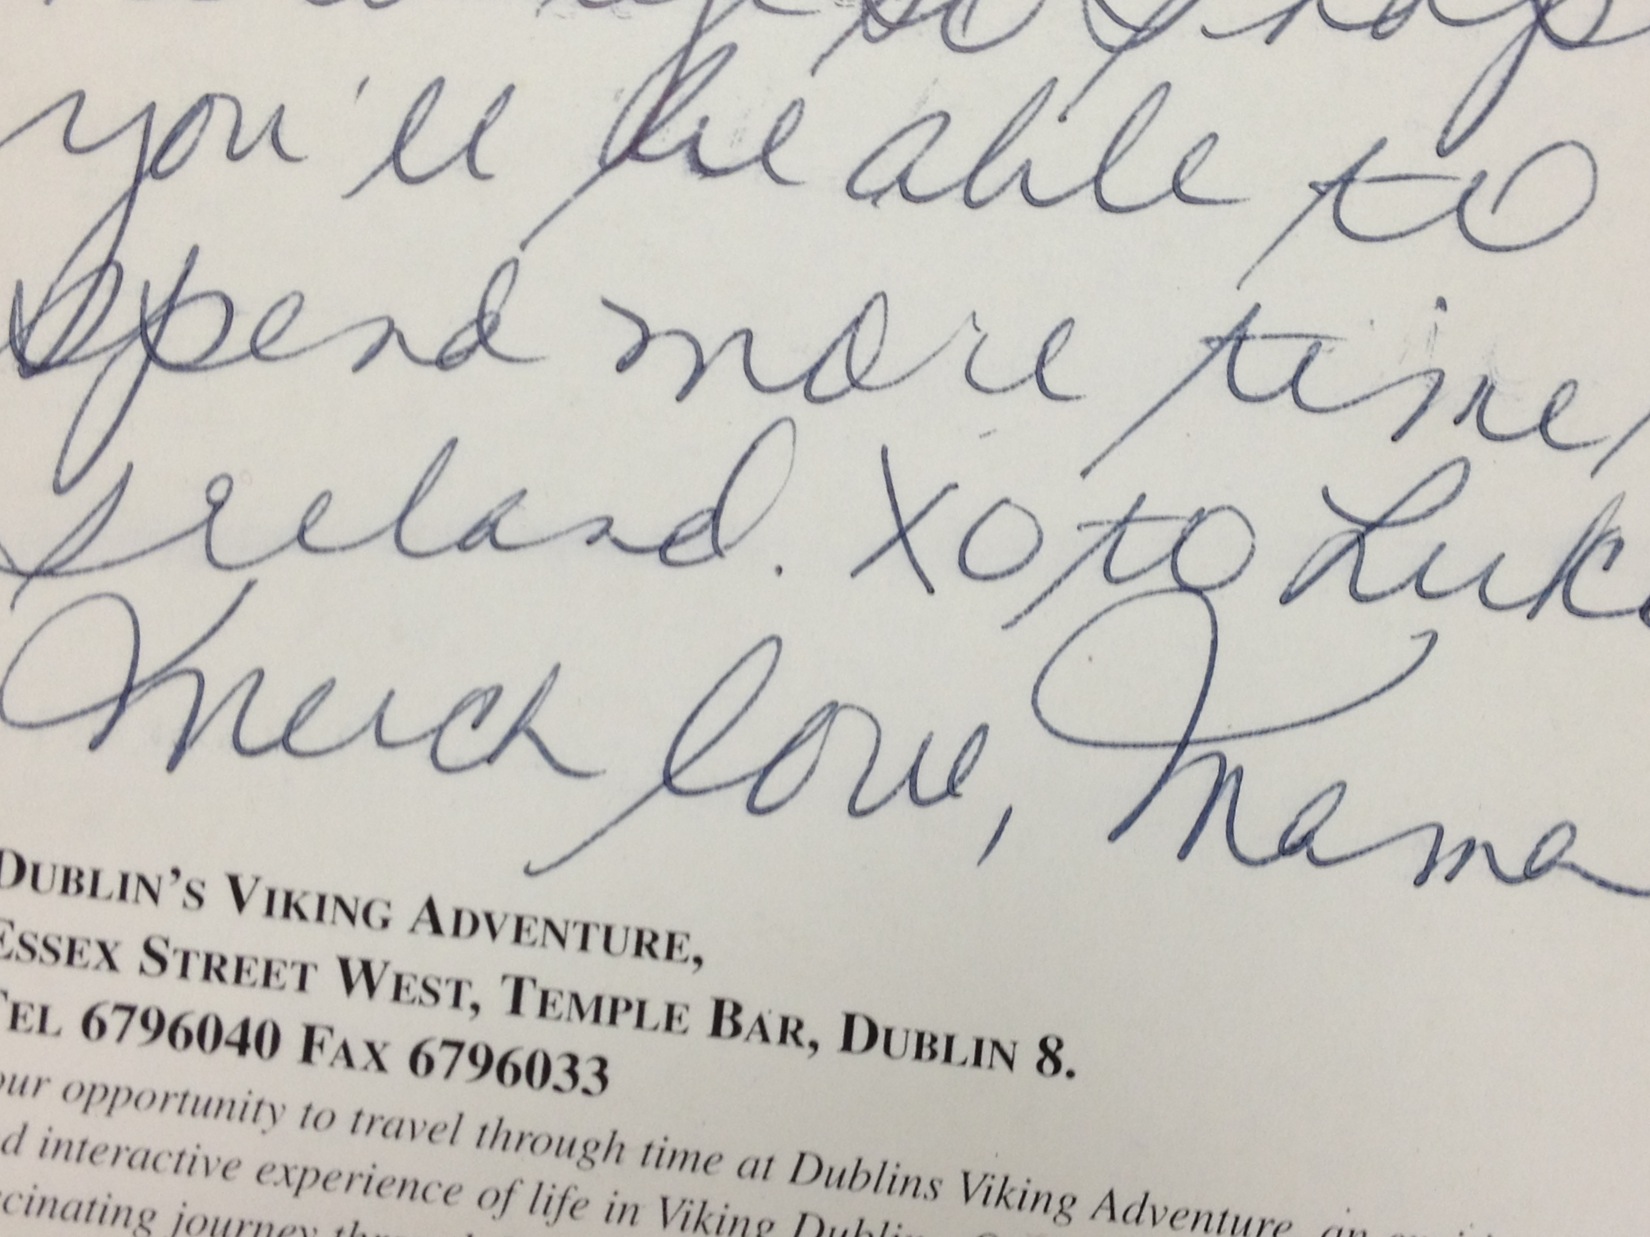 so I hop
you'll be able to
spend more time
Ireland. XO to Luke
Much love, Mama
DUBLIN'S VIKING ADVENTURE,
ESSEX STREET WEST, TEMPLE BAR, DUBLIN 8.
TEL 6796040 FAX 6796033
our opportunity to travel through time at Dublins Viking Adventure, an
d interactive experience of life in Viking Dublin.
cinating journey